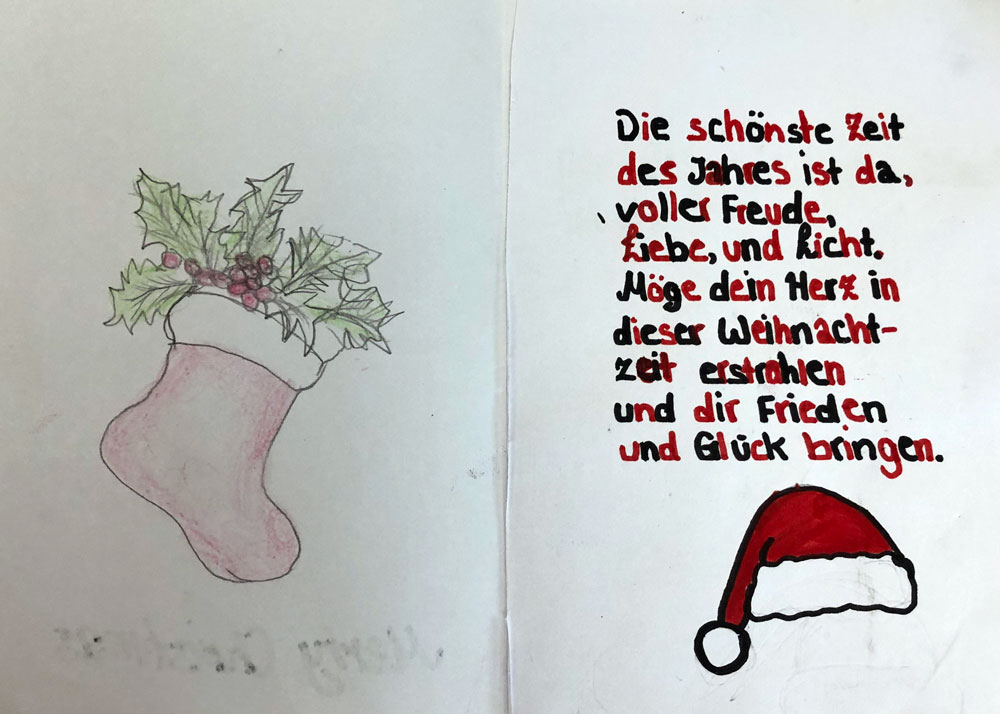 Die schönste Zeit
des Jahres ist da,
voller Freude,
Liebe, und Licht.
Möge dein Herz in
dieser Weihnacht-
zeit erstrahlen
und dir Frieden
und Glück bringen.
Merry Christmas